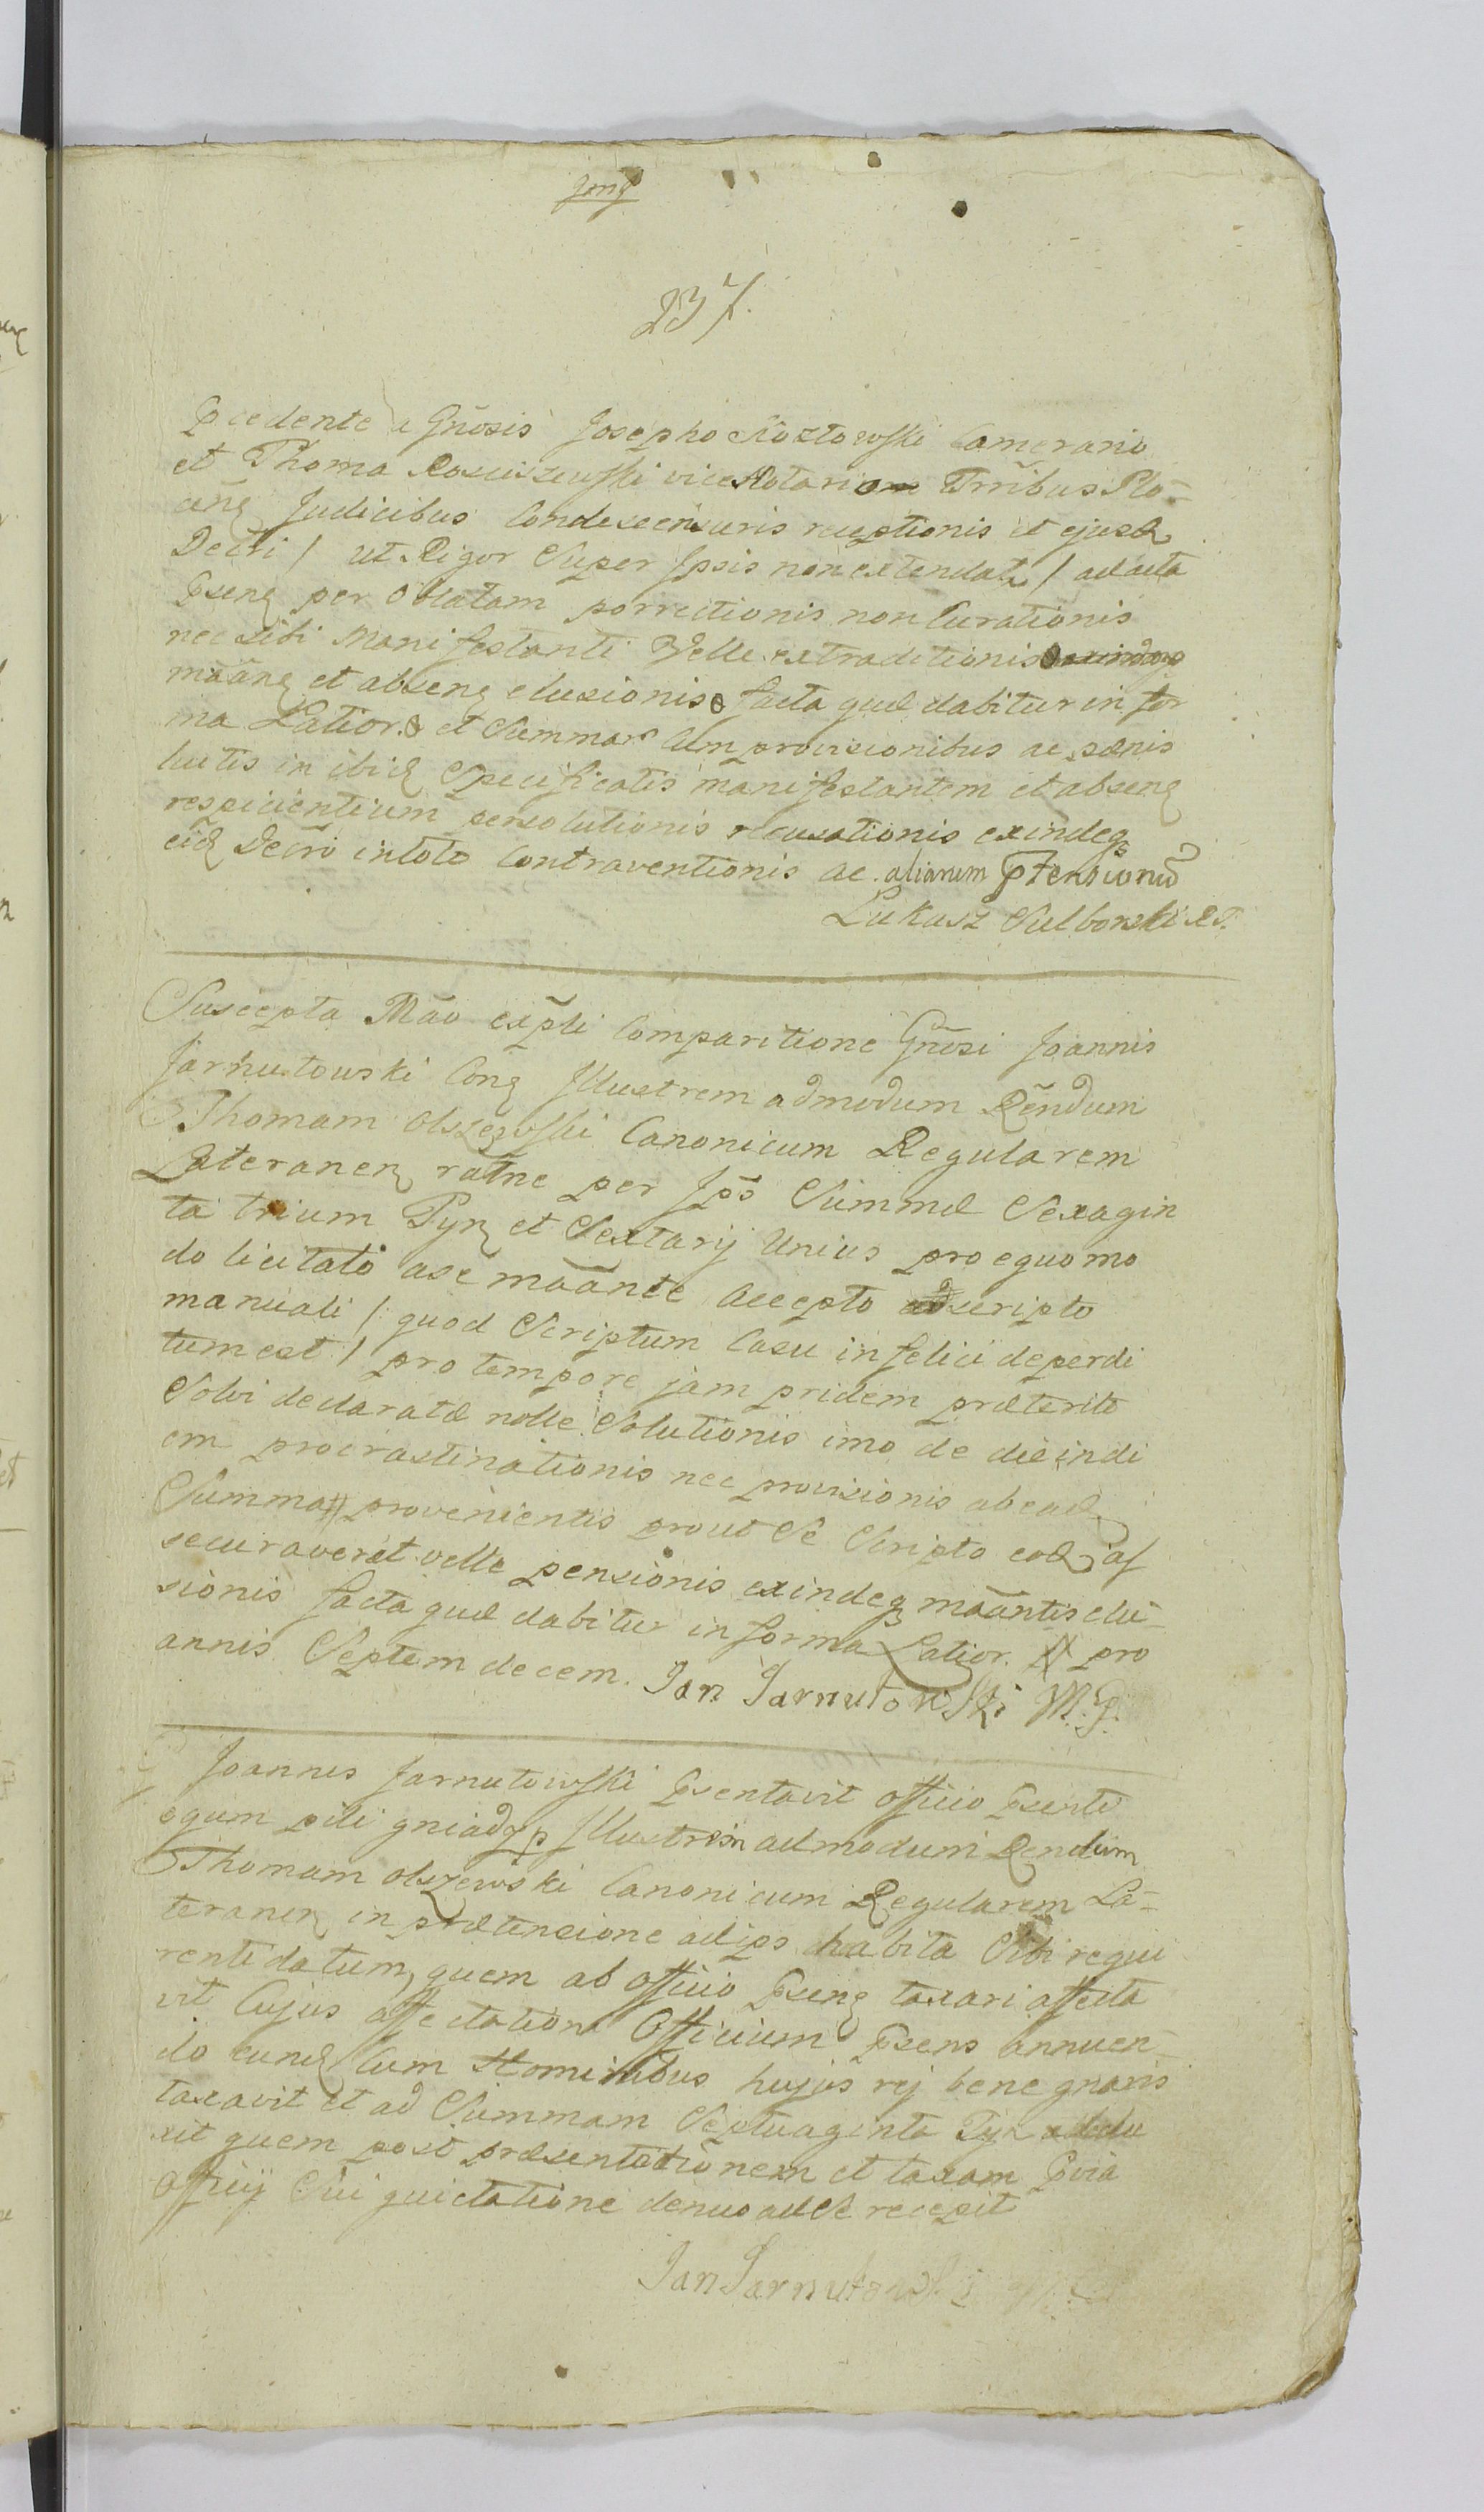 237.
Pcedente a Gñosis Josepho Kozłowski Camerario
et Thoma Rosciszewski vice Notario Trribus Plo-
cen Judicibus Condescensuris receptionis et ejusd
Decri / ut Rigor Super Ipsis non extendat / ad acta
Psen per Oblatam porrectionis non Curationis
nec sibi Manifestanti Velle extraditionis
mããn et absen elusionis facta quæ dabitur in for
ma Latior. et Summar Cum provisionibus ac pænis
luitis in ibid Specificatis manifestantem et absen
respicientium persolutionis recusationis exindeq
eid Decro in toto Contraventionis ac aliarum Ptensionũ
Łukasz Sulborski
Suscepta Mão expli Comparitione Gñosi Joannis
Jarnutowski Con Illustrem admodum Rñdum
Thomam Olszewski Canonicum Regularem
Lateranen ratne per Ips Summæ Sexagin
ta trium Tyn et Sextarij Unius pro equo mo
do licitato a se mãante accepto ad scripto
manuali /: quod Scriptum Casu infelici deperdi
tum est / pro tempore jam pridem præterito
Solvi declaratæ nolle Solutionis imo de die in di
em procrastinationis nec provisionis ab ead
Summa provenientis prout Se Scripto eod as
securaverat velle pensionis exindeq mãantis elu-
sionis facta quæ dabitur in forma Latior. pro
annis Septem decem. Jan Jarnutowski M.P.
Joannes Jarnutowski Psentavit Officio Psenti
equm pili gniady Illustrem admodum Rendum
Thomam Olszewski Canonicum Regularem La-
teranen in prætensione ad ips habita Sibi requi
renti datum, quem ab Officio Psen taxari affecta
vit Cujus affectationi Officium Psens annuen-
do eund Cum Hominibus hujus rej bene gnaris
taxavit et ad Summam Septuaginta Tyn addu
xit quem post præsentationem et taxam Pvia
Officij Sui quietatione denuo ad se recepit
Jan Jarnutowski